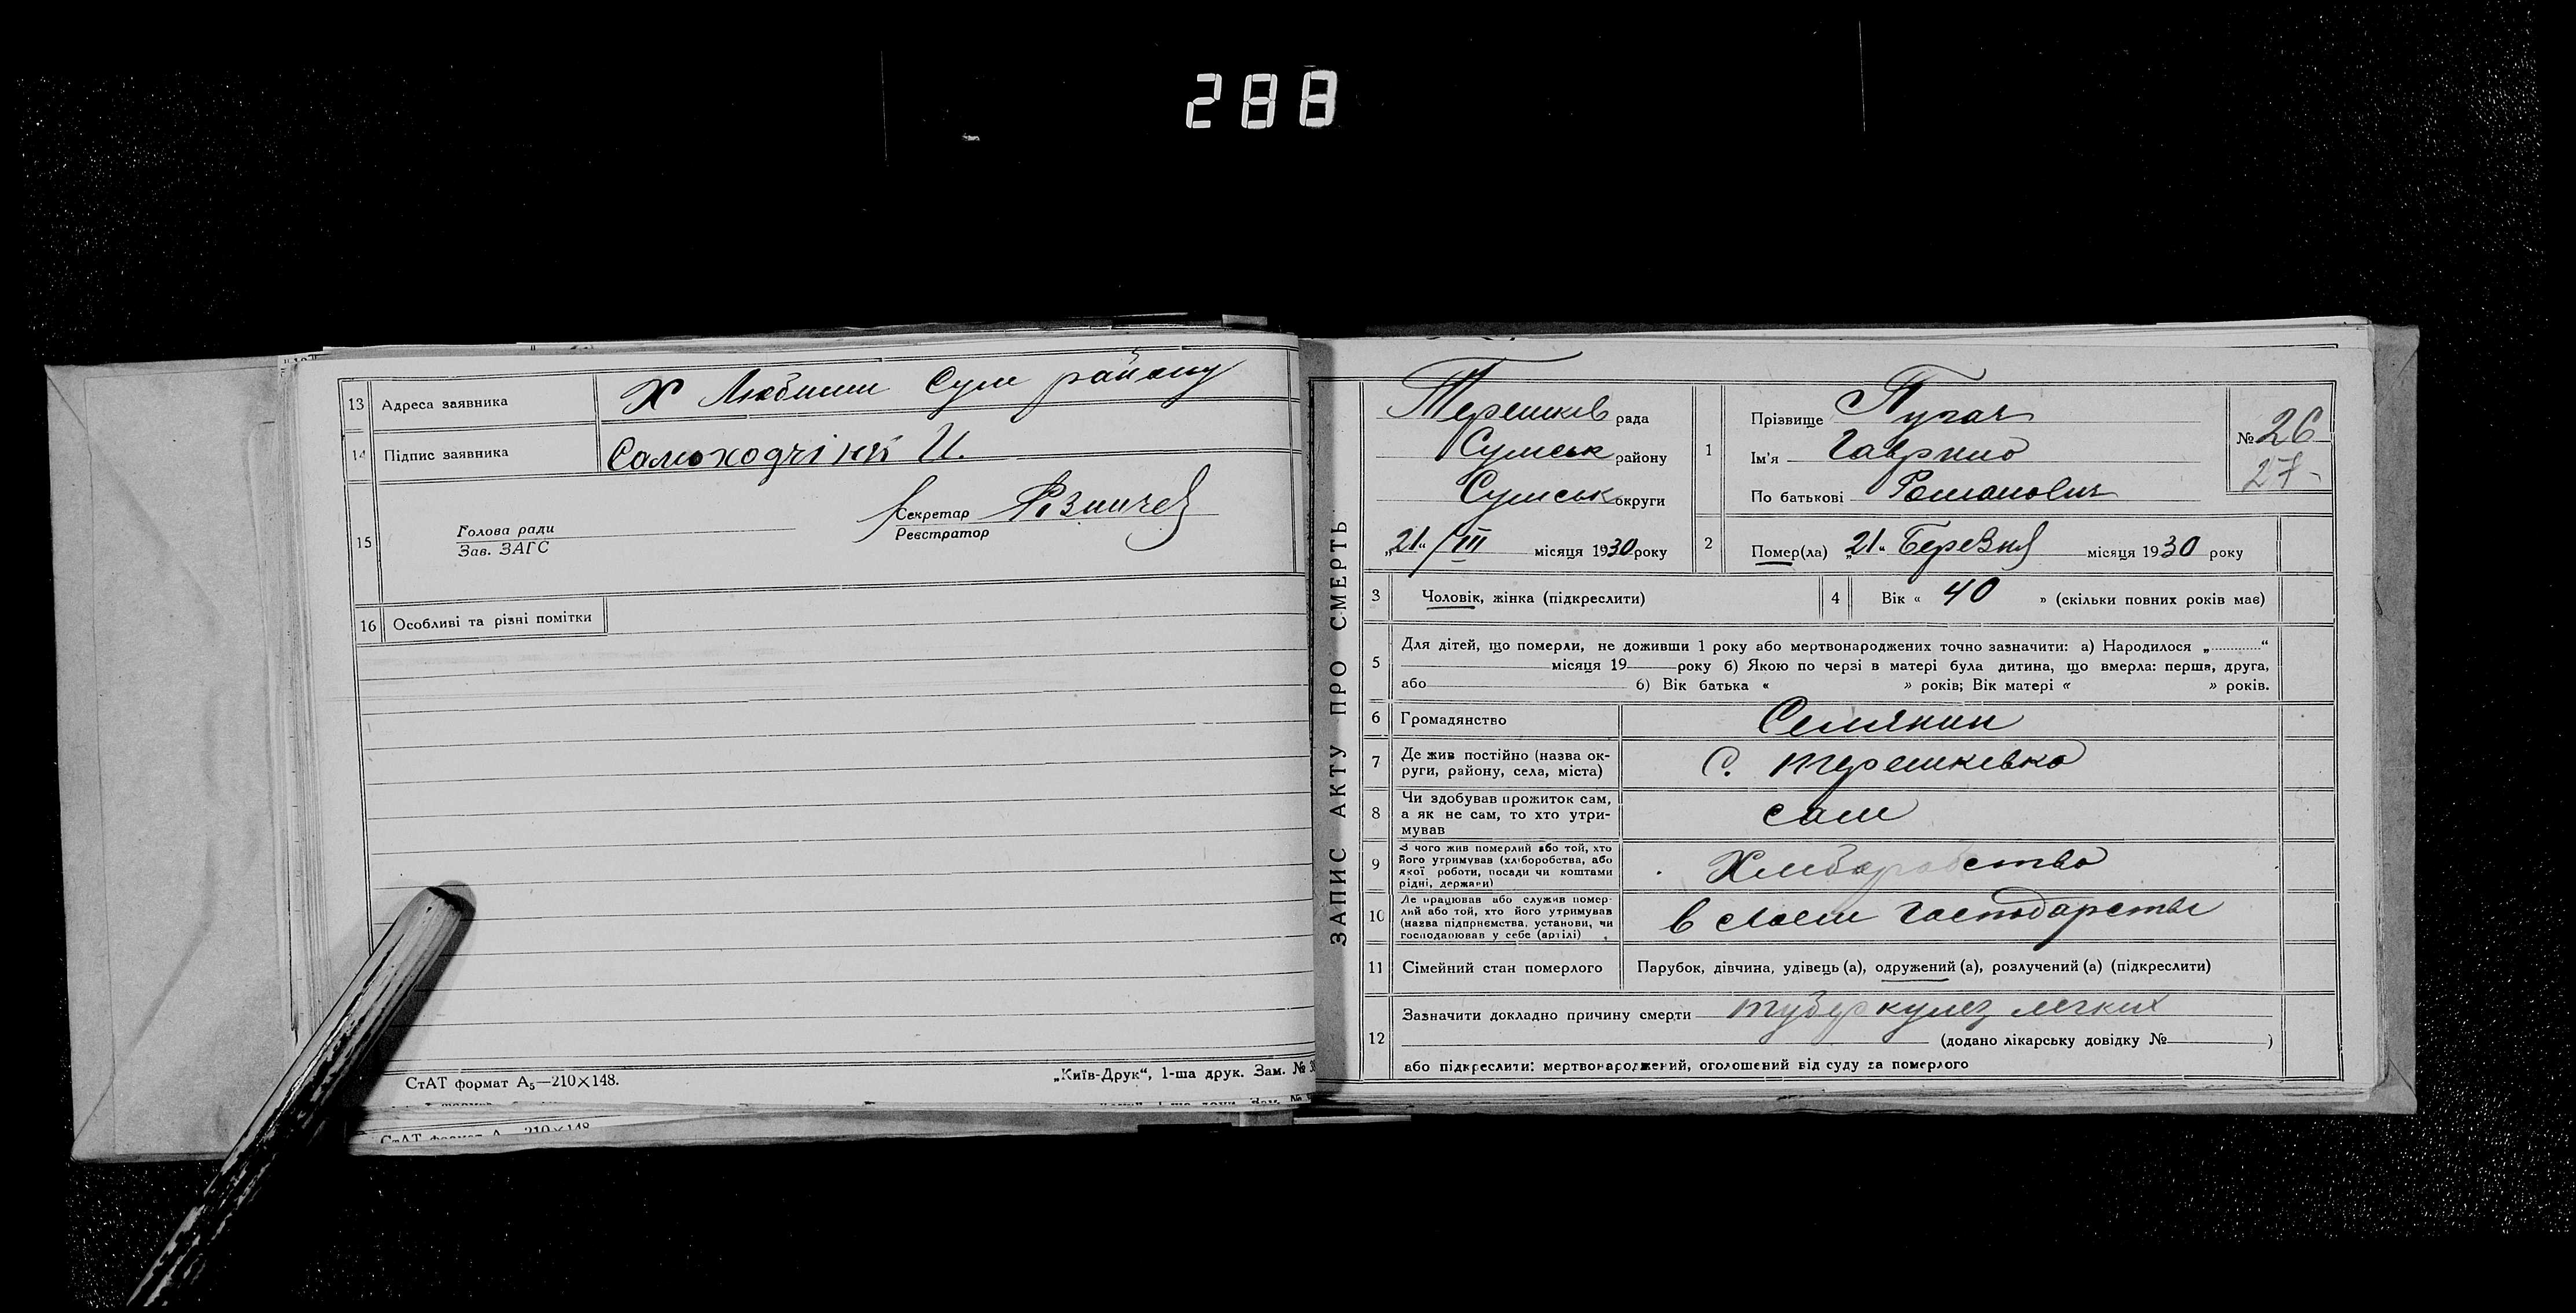 288
13 Адреса заявника Х Любими Сум району
14 Підпис заявника Самоходчінк И.
15 Голова ради
Зав. ЗАГС
Секретар
Реєстратор
16 Особливі та різні помітки
СтАТ формат А₅—210×148.
„Київ-Друк“, 1-ша друк. Зам. №
ЗАПИС АКТУ ПРО СМЕРТЬ
Терешків рада
Сумськ району
Сумськ округи
„21“ /III місяця 1930 року
1 Прізвище Пугач
Ім'я Гаврило
По батькові Романович
№ 26
27
2 Помер(ла) „21“ Березня місяця 1930 року
3 Чоловік, жінка (підкреслити)
4 Вік « 40 » (скільки повних років має)
5 Для дітей, що померли, не доживши 1 року або мертвонароджених точно зазначити: а) Народилося „............“
місяця 19 року б) Якою по черзі в матері була дитина, що вмерла: перша, друга,
або 6) Вік батька « » років; Вік матері « » років.
6 Громадянство Селянин
7 Де жив постійно (назва ок-
руги, району, села, міста) С. Терешківка
8 Чи здобував прожиток сам,
а як не сам, то хто утри-
мував сам
9 З чого жив померлий або той, хто
його утримував (хліборобства, або
якої роботи, посади чи коштами
рідні, держави) Хлиборобство
10 Де працював або служив помер-
лий або той, хто його утримував
(назва підприємства, установи, чи
господарював у себе (артілі) в своєм господарстві
11 Сімейний стан померлого Парубок, дівчина, удівець (а), одружений (а), розлучений (а) (підкреслити)
12 Зазначити докладно причину смерти туберкулез легких
(додано лікарську довідку № )
або підкреслити: мертвонароджений, оголошений від суду за померлого
СтАТ формат А 210×148